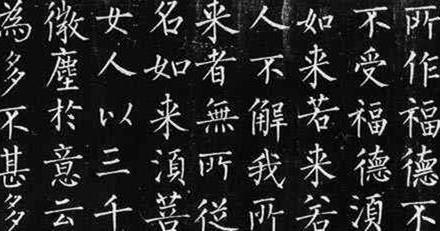 所作福德不
不受福德湏
如来若来若
人不解我所
来者無所從
名如来湏菩
女人以三千
微塵於意云
為多不甚多